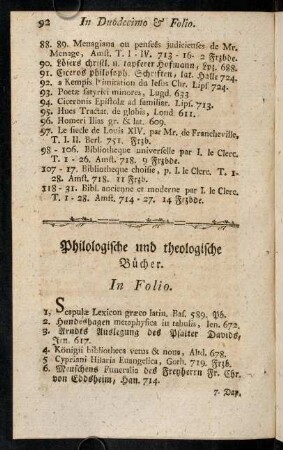 92 In Duodecimo & Folio.
88. 89. Menagiana ou pensées judicienses de Mr.
Menage, Amst. T. I - IV. 713 - 16. 2 Frzbde.
90. Löbers christl. u. tapferer Hofmann, Lpz. 688.
91. Ciceros philosoph. Schriften, lat. Halle 724.
92. a Kempis l'imitation du Jesus Chr. Lips 724.
93. Poetæ satyrici minores, Lugd. 633
94. Ciceronis Epistolæ ad familiar. Lips. 713.
95. Hues Tractat. de globis, Lond 611.
96. Homeri Ilias gr. & lat. 609.
97. Le siecle de Louis XIV. par Mr. de Francheville,
T. I. II. Berl. 751. Frzb.
98 - 106. Bibliotheque universelle par I. le Clerc.
T. 1 - 26. Amst. 718. 9 Frzbde.
107 - 17. Bibliotheque choisie, p. I. le Clerc. T. 1-
28. Amst. 718. 11 Frzb.
118 - 31. Bibl. ancienne et moderne par I. le Clerc.
T. 1 - 28. Amst. 714 - 27. 14 Frzbde.
Philologische und theologische
Bücher.
In Folio.
1. Scapulæ Lexicon græco latin, Bas. 589. Pb.
2. Hundeshagen metaphysica in tabulis, Ien. 672.
3. Arndts Auslegung des Psalter Davids,
Jen. 617.
4. Königii bibliotheca vetus & nova, Altd. 678.
5 Cypriani Hilaria Evangelica, Goth. 719. Frzb.
6. Meuschens Funeralia des Freyherrn Fr. Chr.
von Eddsheim, Han. 714.
7. Dap.